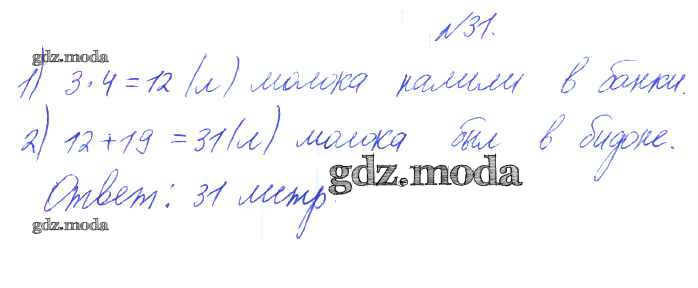 №31.
gdz.moda
1) 3·4=12 (л) молока налили в банки.
2) 12+19=31(л) молока был в бидоне.
gdz.moda
Ответ: 31 литр.
gdz.moda